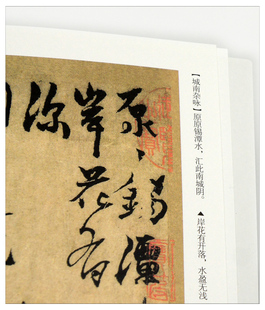 【城南杂咏】原原锡潭水，汇此南城阴。▲岸花有开落，水盈无浅
原〻錫潭
岸花有
深